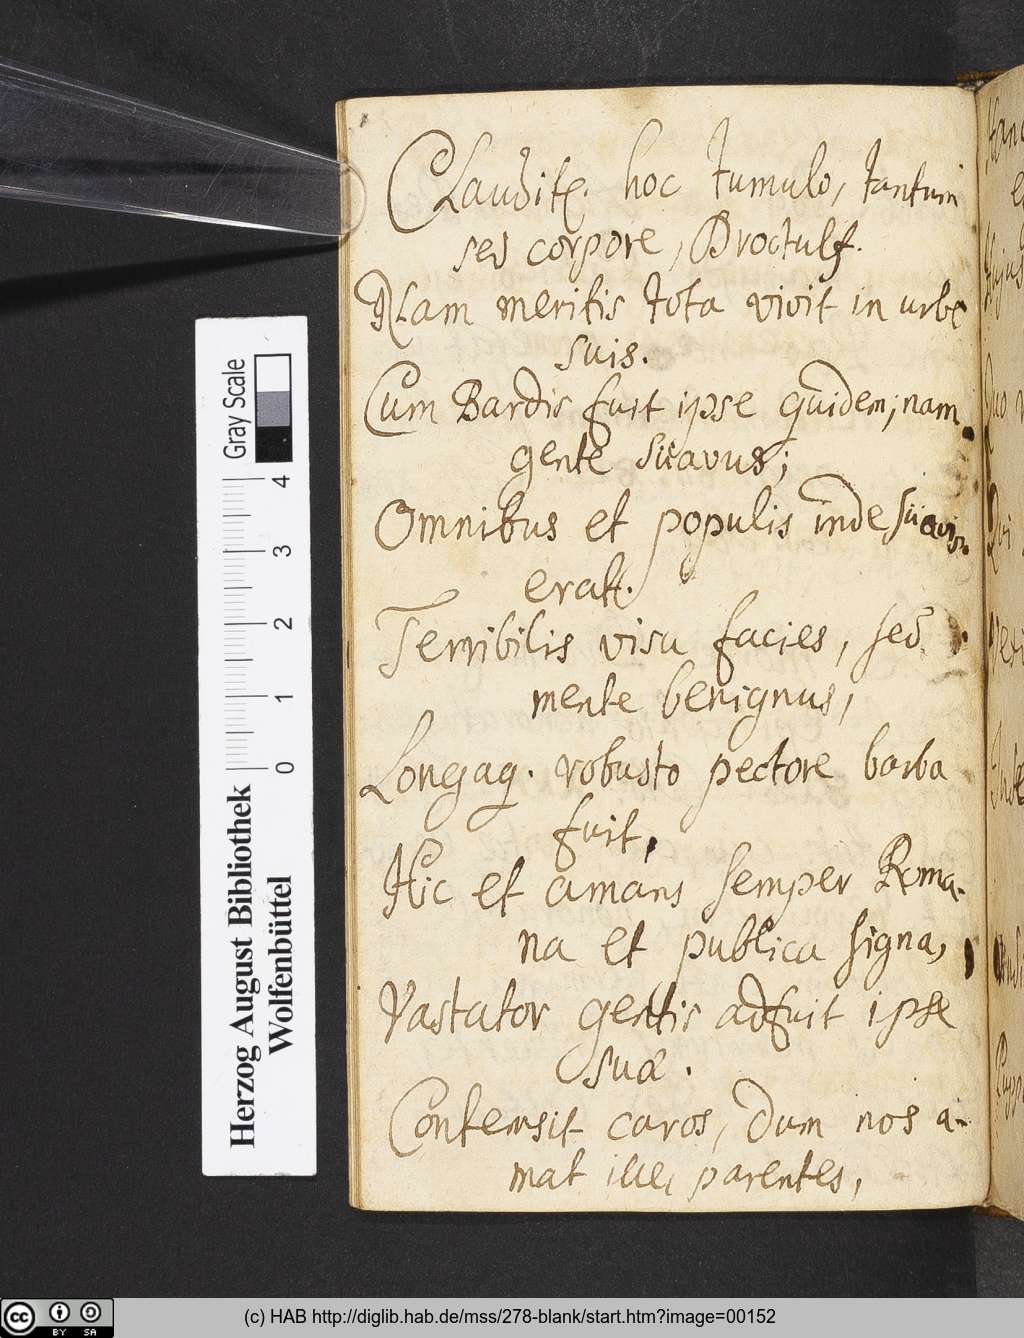 Claudit. hoc tumulo, tantum
sed corpore, Droctulf.
Nam meritis tota vivit in urbe
suis.
Cum Bardis fuit ipse quidem, nam
gente Suavus;
Omnibus et populis inde suavis
erat.
Terribilis visu facies, sed
mente benignus,
Longaq. robusto pectore barba
fuit,
Hic et amans semper Roma-
na et publica signa,
Vastator gentis adfuit ipse
suæ.
Contemsit caros, dum nos a-
mat ille, parentes,
Gray Scale
0 1 2 3 4
Herzog August Bibliothek
Wolfenbüttel
cc BY SA
(c) HAB http://diglib.hab.de/mss/278-blank/start.htm?image=00152